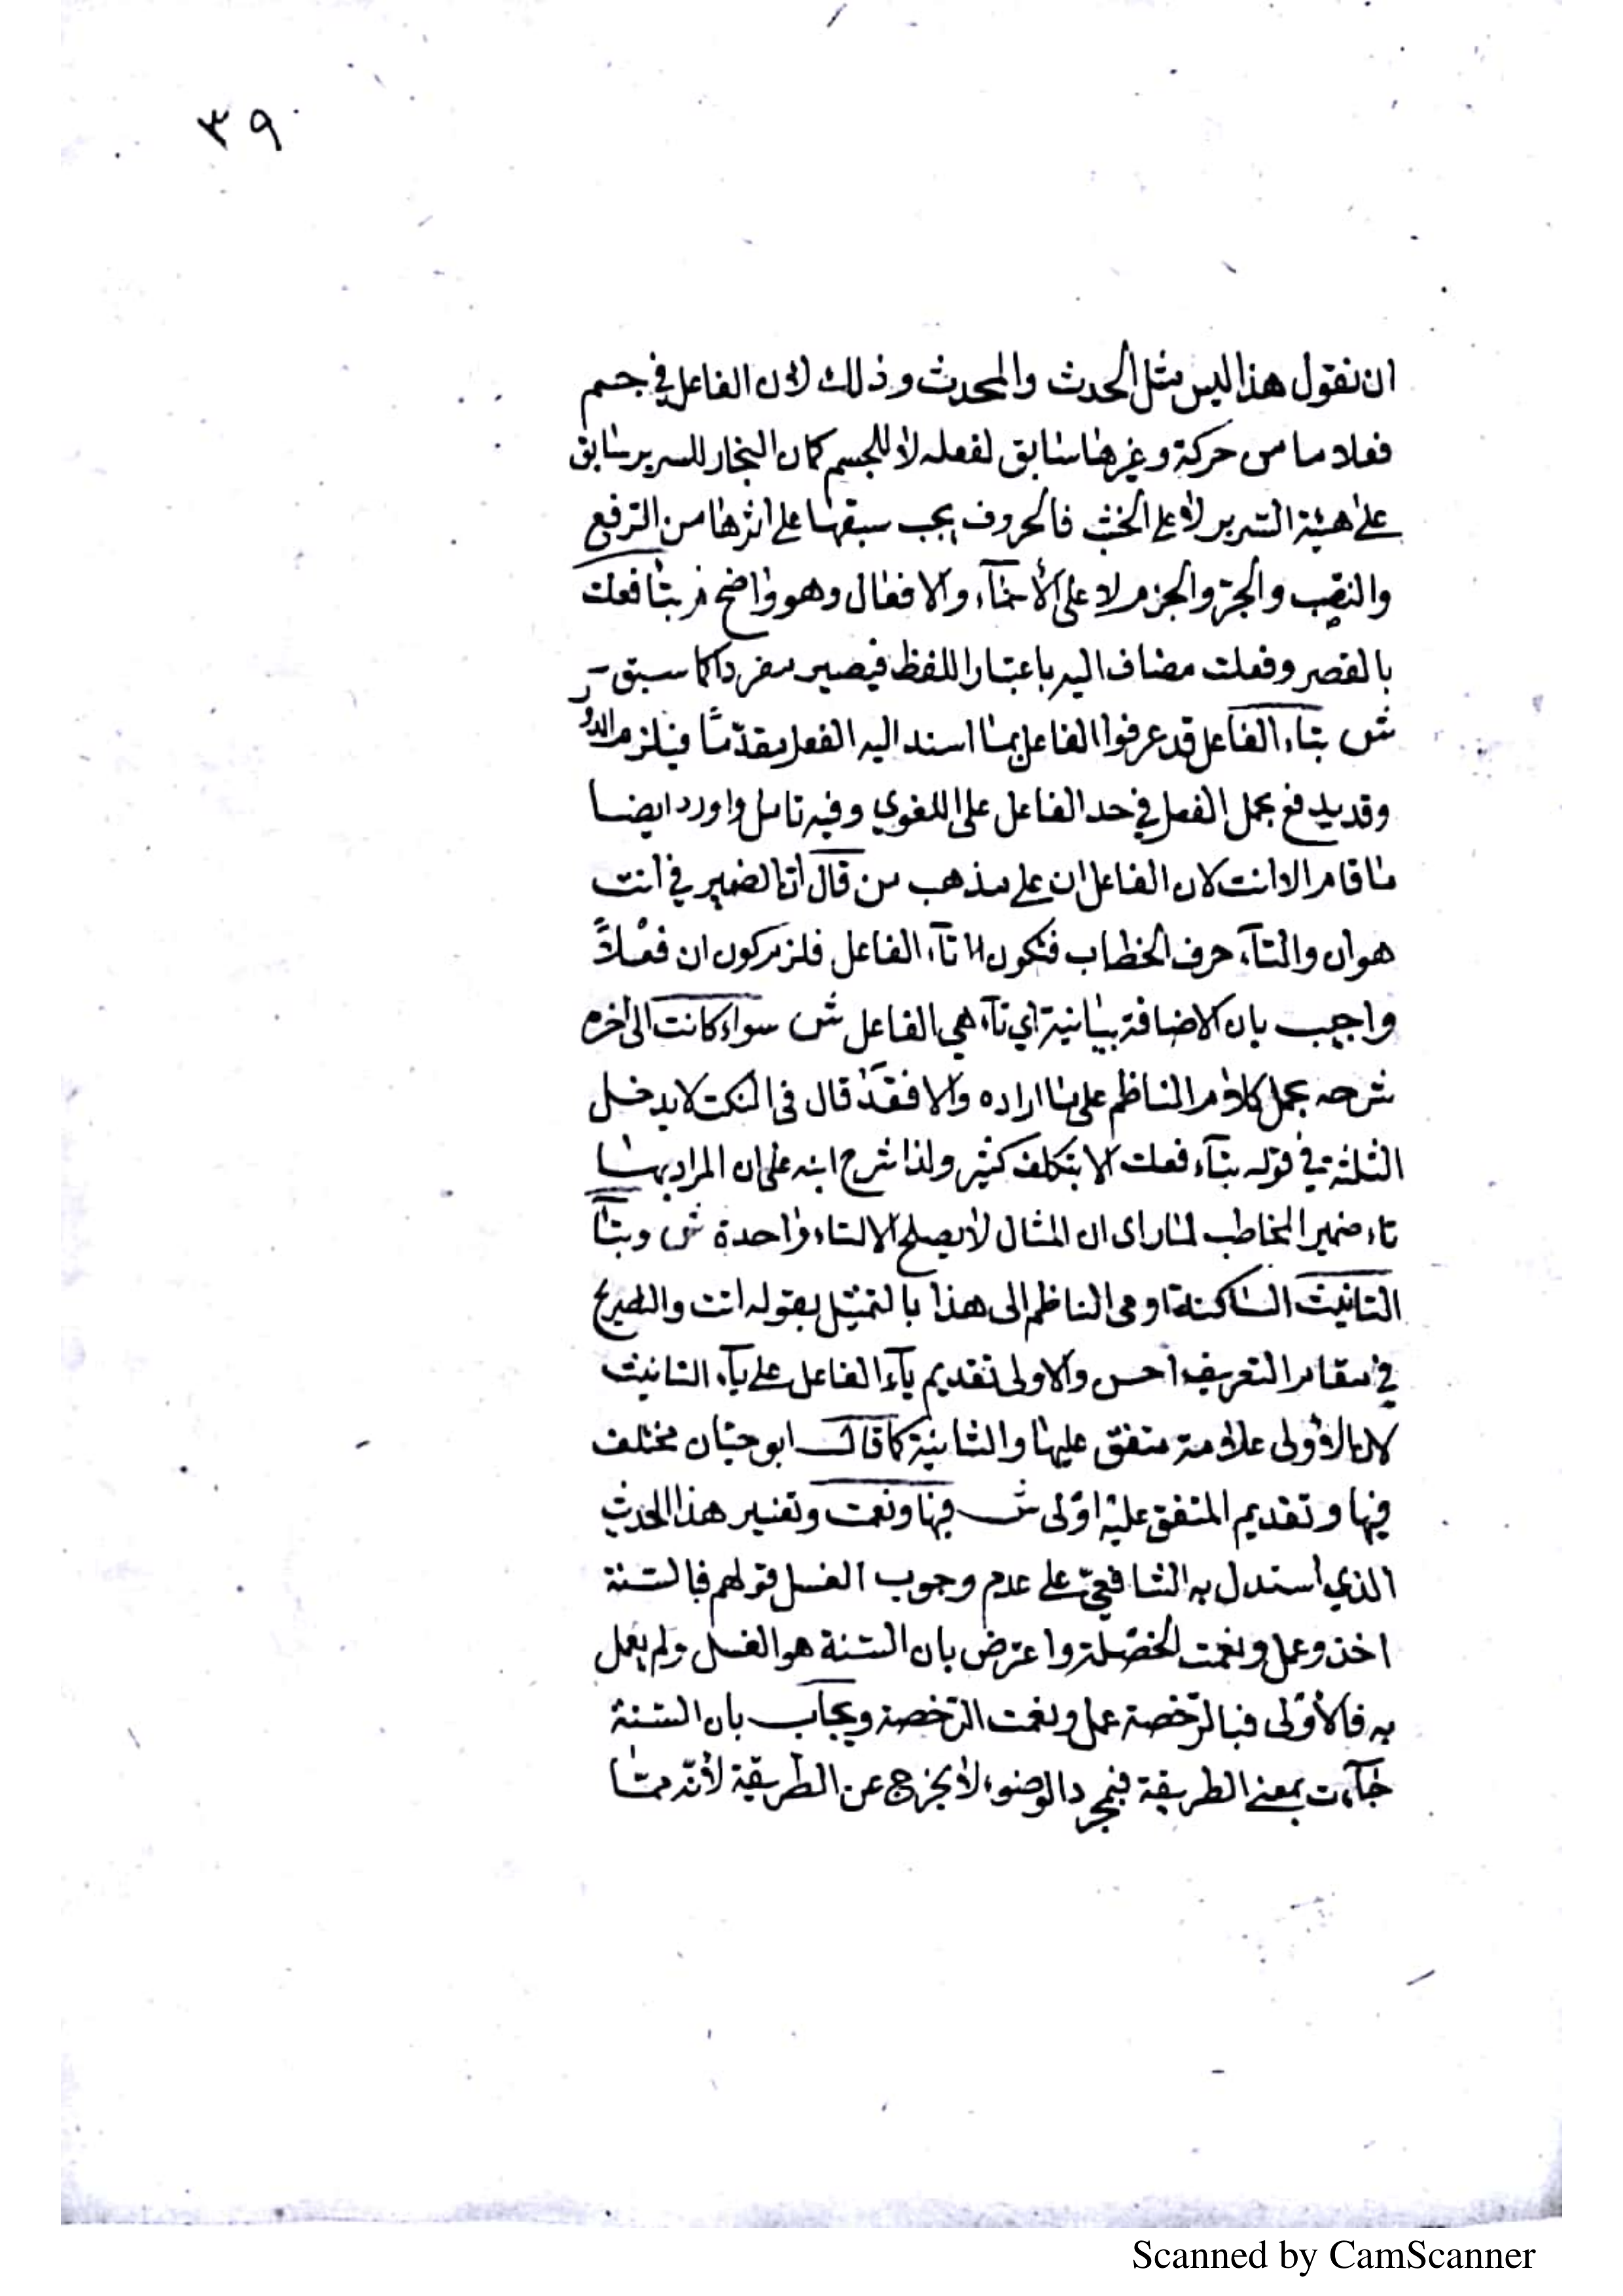 ٣٩
ان نقول هذا ليس مثل الحدث والمحدث وذلك لان الفاعل في جسم
فعلا ما من حركة وغيرها سابق لفعله لا للجسم كما ان النجار للسرير سابق
على هيئة السرير لا على الخشب فالحروف يجب سبقها على اثرها من الرفع
والنصب والجر والجزم لا على الأسمآء والافعال وهو واضح ص بتا فعلت
بالقصر وفعلت مضاف اليه باعتبار اللفظ فيصير مفردا كما سبق
ش بتاء الفاعل قد عرفوا الفاعل بما اسند اليه الفعل مقدّمًا فيلزم الدور
وقد يدفع بحمل الفعل في حد الفاعل على اللغوي وفيه تامل واورد ايضا
ما قام الا انت لان الفاعل ان على مذهب من قال ان الضمير في أنت
هو ان والتآء حرف الخطاب فتكون تآء الفاعل فلزم كون ان فعْلاً
واجيب بان الاضافة بيانية اي تآء هي الفاعل ش سواء كانت الى اخره
شرحه بحمل كلام الناظم على ما اراده والا فقد قال في النكت لا يدخل
الثلثة في قوله بتآء فعلت الا بتكلف كثير ولذا شرح ابنه على ان المراد بها
تاء ضمير المخاطب لما راى ان المثال لا يصلح الا لتاء واحدة ش وبتآ
التانيث الساكنة اومى الناظم الى هذا بالتمثيل بقوله اتت والتصريح
في مقام التعريف احسن والاولى تقديم تآء الفاعل على تآء التانيث
لان الأولى علامة متفق عليها والثانية كما قال ابو حيّان مختلف
فيها وتقديم المتفق عليه اوْلى ش فبها ونعمت وتفسير هذا الحديث
الذي استدل به الشافعيّ على عدم وجوب الغسل قولهم فبالسنة
اخذ وعمل ونعمت الخصلة واعترض بان السّنة هو الغسل ولم يعمل
به فالأوْلى فبالرّخصة عمل ونعمت الرّخصة ويجاب بان السّنة
جآءت بمعنى الطريقة فبمجرد الوضوء لا يخرج عن الطريقة لأنّه ممّا
Scanned by CamScanner